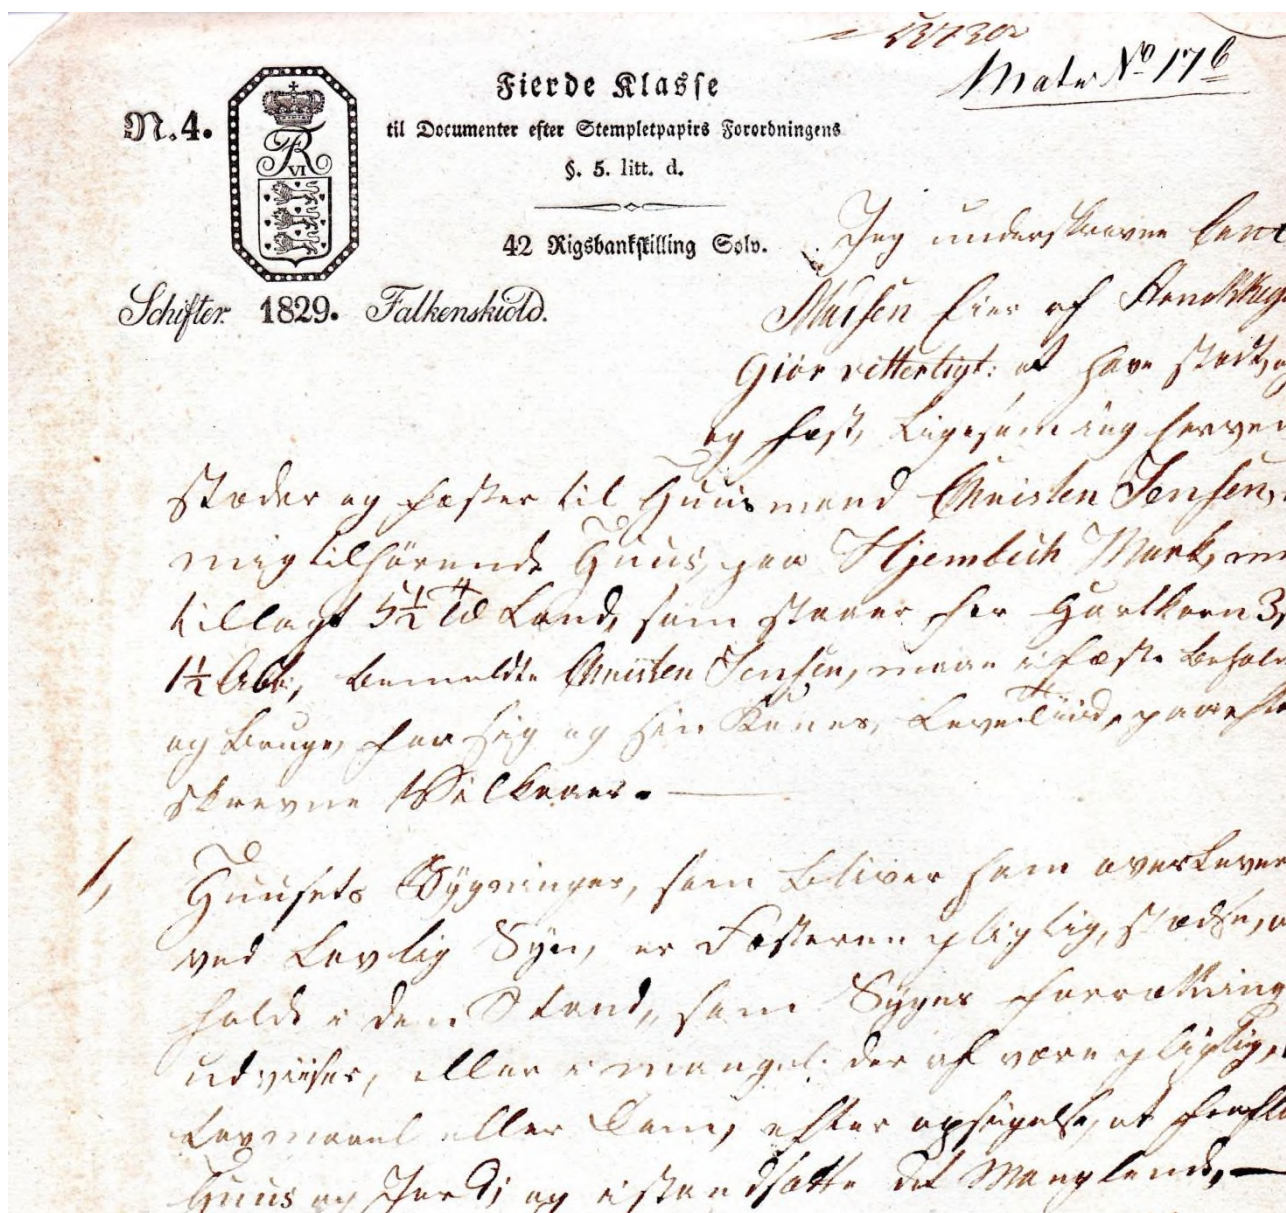 Matr No 17b
Fierde Klasse
N.4.
til Documenter efter Stempletpapirs Forordningens
§. 5. litt. d.
42 Rigsbankskilling Sølv.
FR VI
Schifter. 1829. Falkenskiold.
Jeg underskrevne
Madsen Eier af
Giør vitterligt: at have stædt,
og fæst, Ligesom ieg herved
stæder og fæster til Huusmand Christen Jensen,
mig tilhørende Huus, paa Hjembech Mark,
tillagt 5½ Td Land, som staaer for Hartkorn 3,
1½ Alb:, bemeldte Christen Jensen, maae i fæste Behold
og Bruge, for sig og sin Kones, Levetiid, paa
skrevne Vilkaar.
1, Huusets Bygninger, som bliver ham overlever
ved Lovlig Syn, er Fæsteren pligtig, stædse,
holde i den Stand, som Synes forretning
udviiser, eller i mangel deraf være pligtig,
Lovmaal eller Dom, efter opsigelse, at
Huus og Jord; og istandsætte det Manglende,